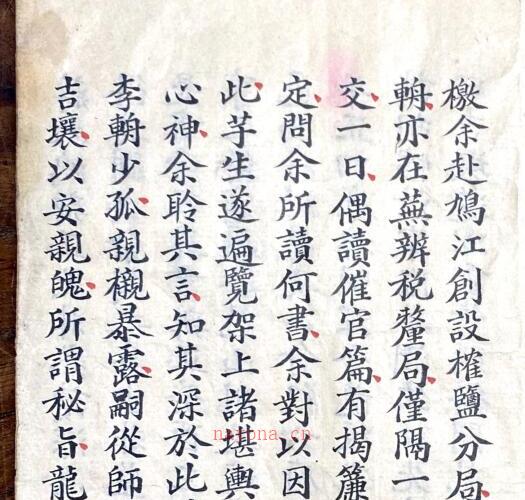 檄余赴鳩江創設榷鹽分局
亦在蕪辨税釐局僅隅一
交一日偶讀催官篇有揭簾
定問余所讀何書余對以因
此芋生遂遍覽架上諸堪輿
心神余聆其言知其深於此
李少孤親櫬暴露嗣從師
吉壤以安親魄所謂秘旨龍